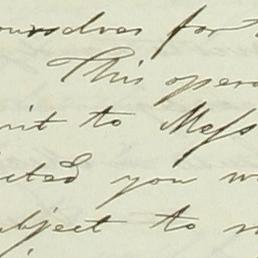 ourselves for
This opera
it to Mess
cted you w
bject to